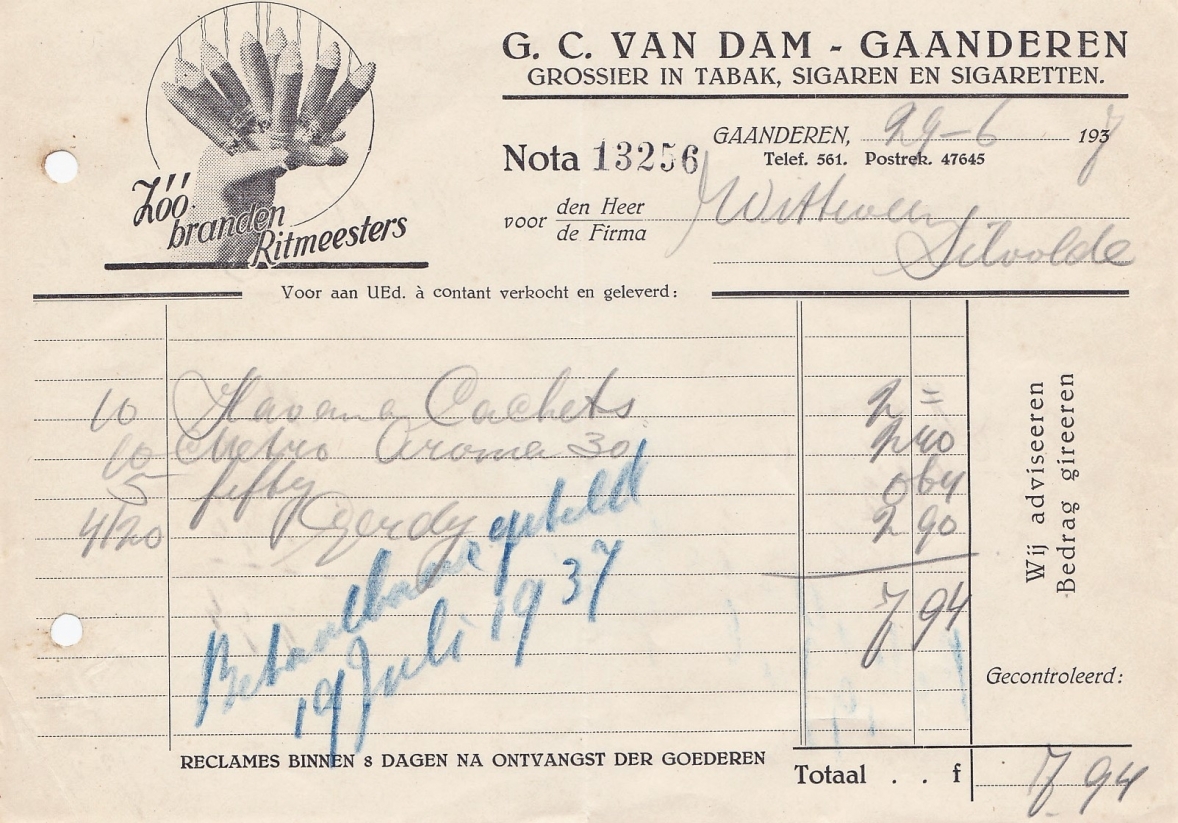 G. C. VAN DAM - GAANDEREN
GROSSIER IN TABAK, SIGAREN EN SIGARETTEN.
Zóó
branden
Ritmeesters
GAANDEREN, 29-6 1937
Nota 13256
Telef. 561. Postrek. 47645
voor den Heer
de Firma
Silvolde
Voor aan UEd. à contant verkocht en geleverd:
10 Havana Cachets 2 =
10 Metro Aroma 30 2 40
5 fifty 0 64
4/20 Gerdy 2 90
7 94
Betaalbaar gesteld
19 Juli 1937
Wij adviseeren
Bedrag gireeren
Gecontroleerd:
RECLAMES BINNEN 8 DAGEN NA ONTVANGST DER GOEDEREN
Totaal . . f 7 94